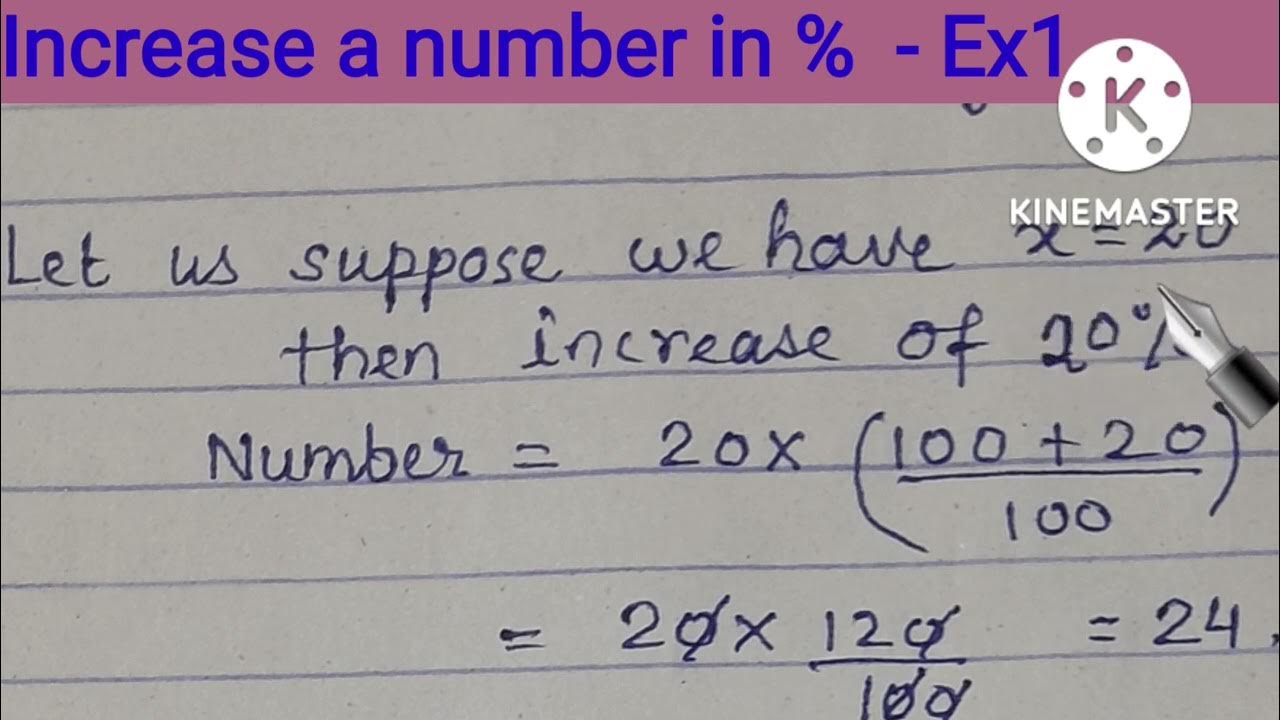 Increase a number in % - Ex1
K
KINEMASTER
Let us suppose we have x = 20
then increase of 20%
Number = 20 x (100 + 20 / 100)
= 20 x 120 / 100 = 24.